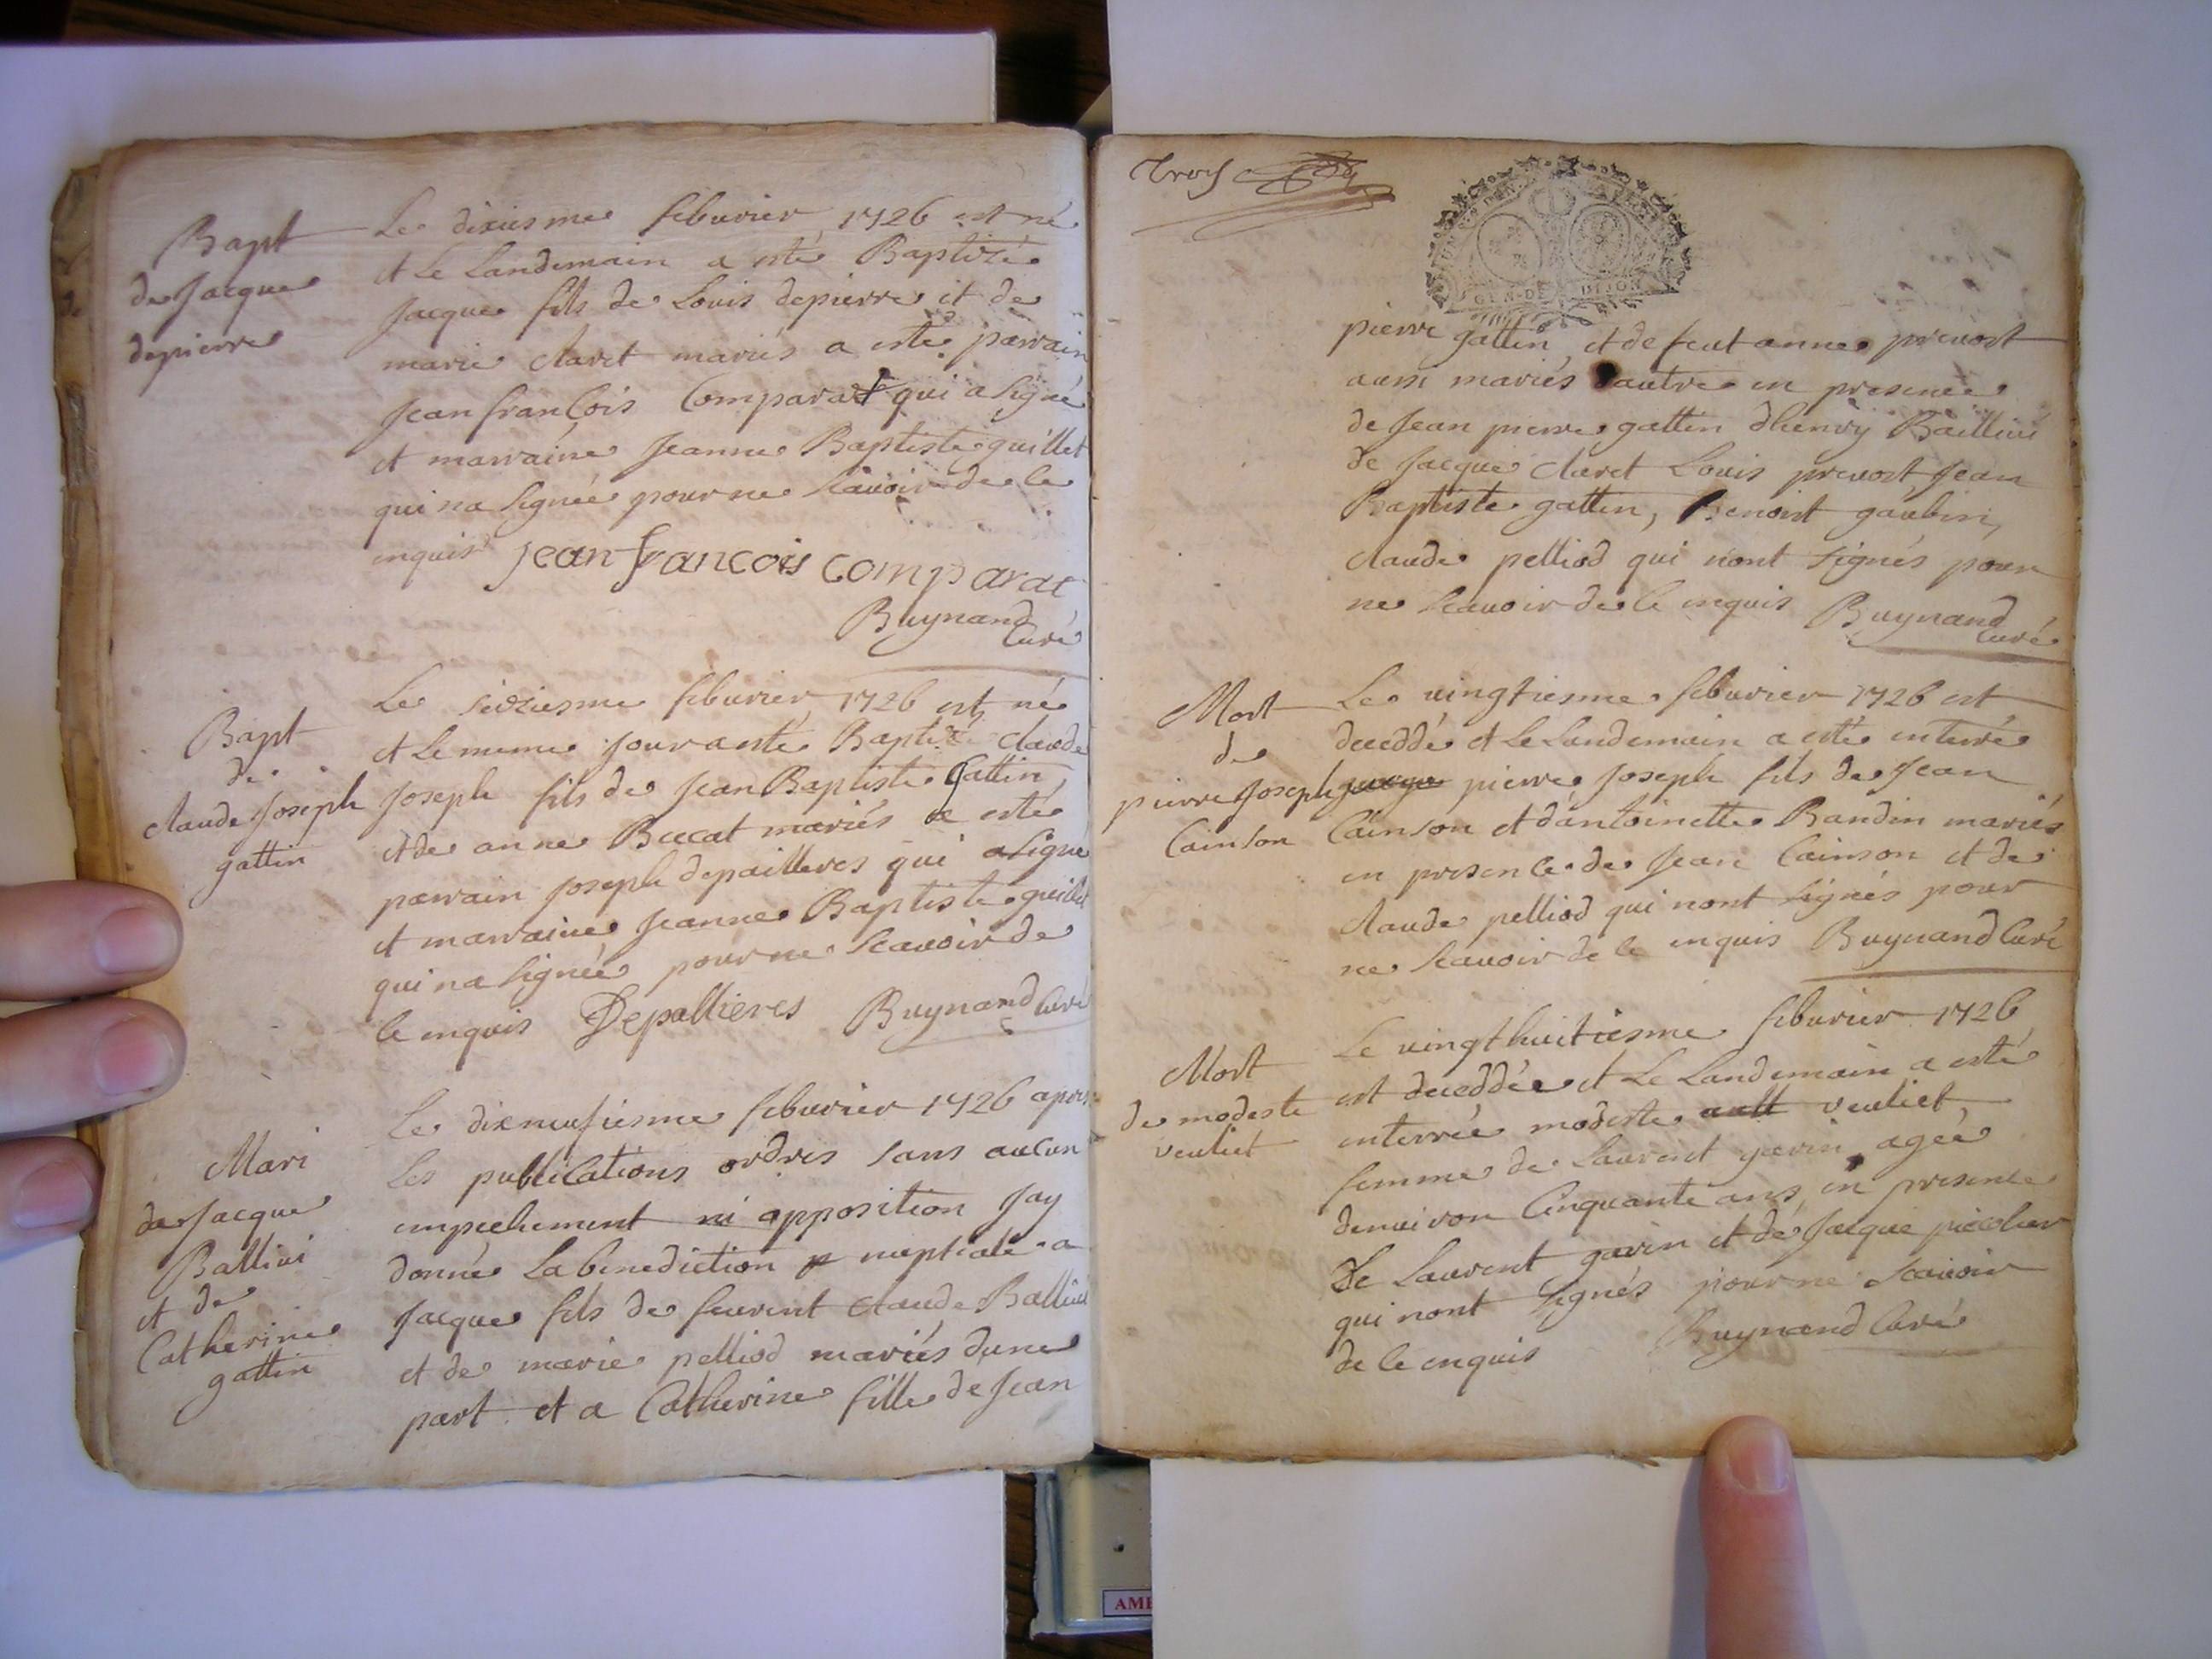 Bapt
de Jacque
depierre
Le dixiesme feburier 1726 est né
et le Landemain a esté Baptizé
Jacque fils de Louis depierre et de
marie claret mariés a esté parrain
Jean françois Comparat qui a signé
et marraine Jeanne Baptiste guillet
qui na signée pour ne scavoir de le
enquis jean francois comparat
Buynand
Curé
Bapt
de
claude Joseph
gattin
Le seiziesme feburier 1726 est né
et le meme jour a esté Baptizé claude
Joseph fils de Jean Baptiste Gattin
et de anne Bucat mariés a esté
parrain Joseph depailleres qui a signé
et marraine Jeanne Baptiste guillet
qui na signée pour ne scavoir de
le enquis Depallieres Buynand Curé
Mari
de Jacque
Ballivi
et de
Catherine
gattin
Le dixneufiesme feburier 1726 apres
Les publications ordres sans aucun
empechement ni opposition Jay
donné La benediction nuptiale a
Jacque fils de feurent claude Ballivi
et de marie pelliod mariés dune
part et a Catherine fille de Jean
Trois
GEN. DE DIJON
pierre gattin et de feut anne prevost
aussi mariés dautre en presence
de Jean pierre gattin dhenry Baillivi
de Jacque claret Louis prevost Jean
Baptiste gattin, Benoist gaubin,
claude pelliod qui nont signés pour
ne scavoir de le enquis Buynand
Curé
Mort
de
pierre Joseph
Cainson
Le vingtiesme feburier 1726 est
deceddé et Le Landemain a esté enterré
pierre Joseph fils de Jean
Cainson et dantoinette Bandin mariés
en presence de Jean Cainson et de
claude pelliod qui nont signés pour
ne scavoir de le enquis Buynand Curé
Mort
de modeste
veuliet
Le vingthuitiesme feburier 1726
est deceddée et Le Landemain a esté
enterrée modeste veuliet,
femme de Laurent gavin, agée
denviron Cinquante ans, en presence
de Laurent gavin et de Jacque piccolier
qui nont signés pour ne scavoir
de le enquis Buynand Curé
AME